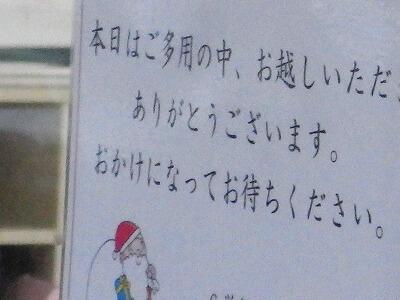 本日はご多用の中、お越しいただ
ありがとうございます。
おかけになってお待ちください。